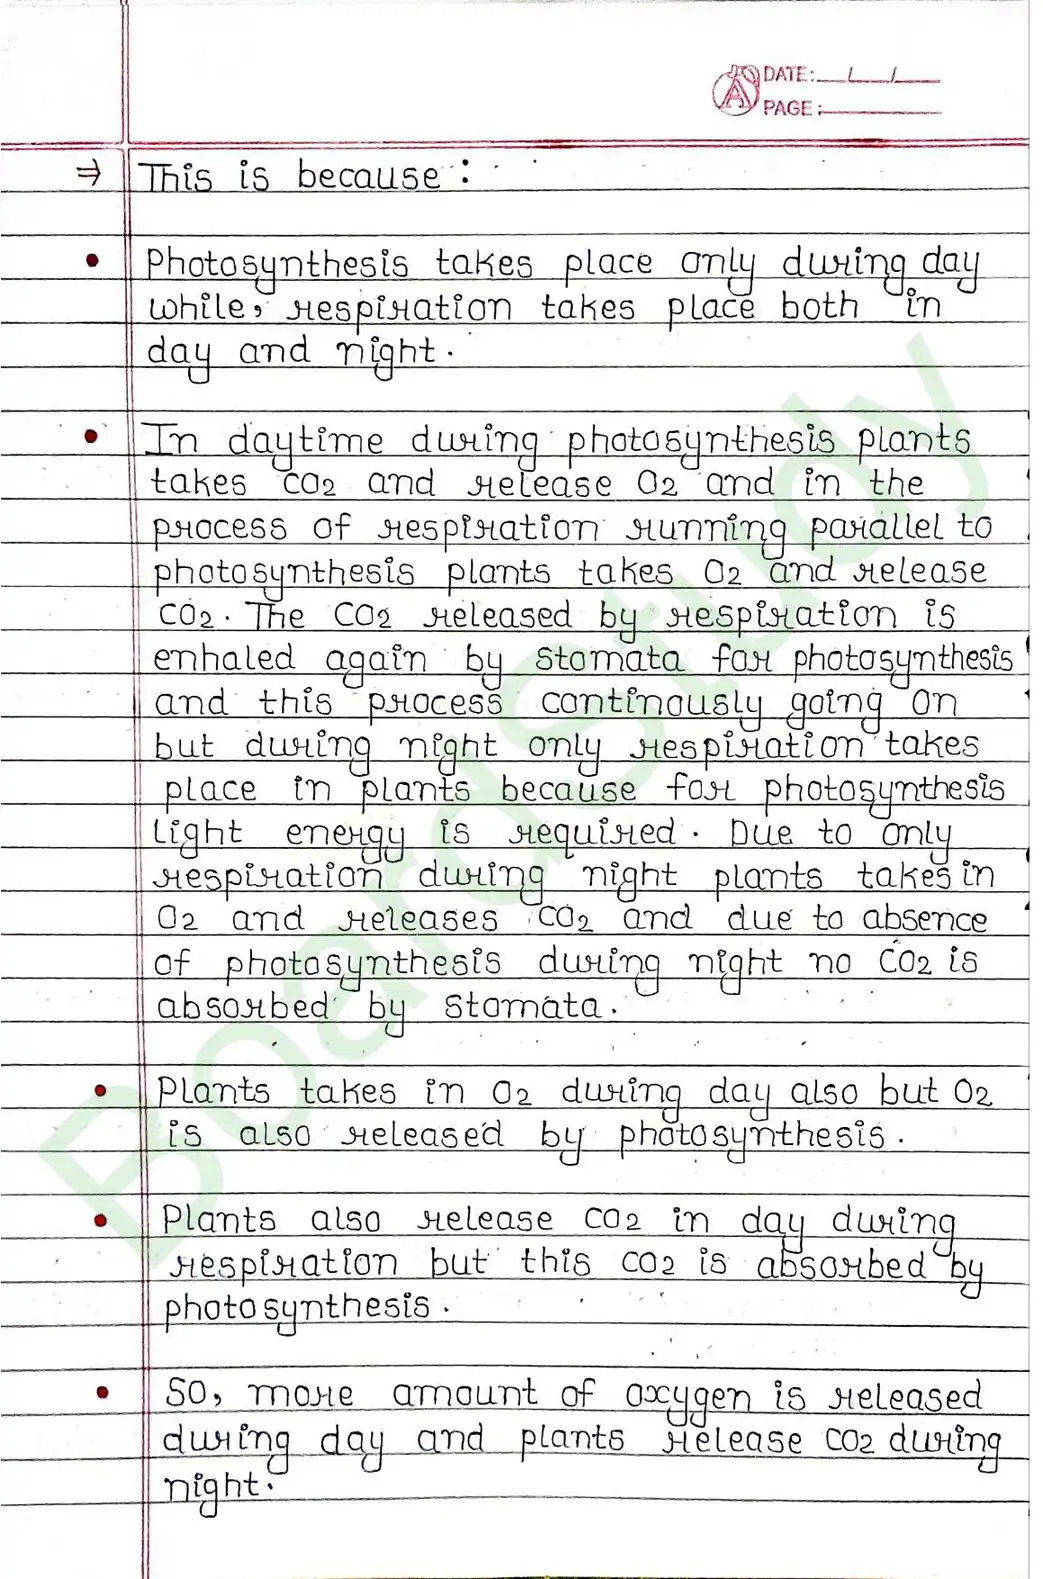 DATE: / /
PAGE:
⇒ This is because:
• Photosynthesis takes place only during day
while, respiration takes place both in
day and night.
• In daytime during photosynthesis plants
takes CO2 and release O2 and in the
process of respiration running parallel to
photosynthesis plants takes O2 and release
CO2. The CO2 released by respiration is
enhaled again by stomata for photosynthesis
and this process continously going on
but during night only respiration takes
place in plants because for photosynthesis
light energy is required. Due to only
respiration during night plants takes in
O2 and releases CO2 and due to absence
of photosynthesis during night no CO2 is
absorbed by stomata.
• Plants takes in O2 during day also but O2
is also released by photosynthesis.
• Plants also release CO2 in day during
respiration but this CO2 is absorbed by
photosynthesis.
• So, more amount of oxygen is released
during day and plants release CO2 during
night.
BoardStudy